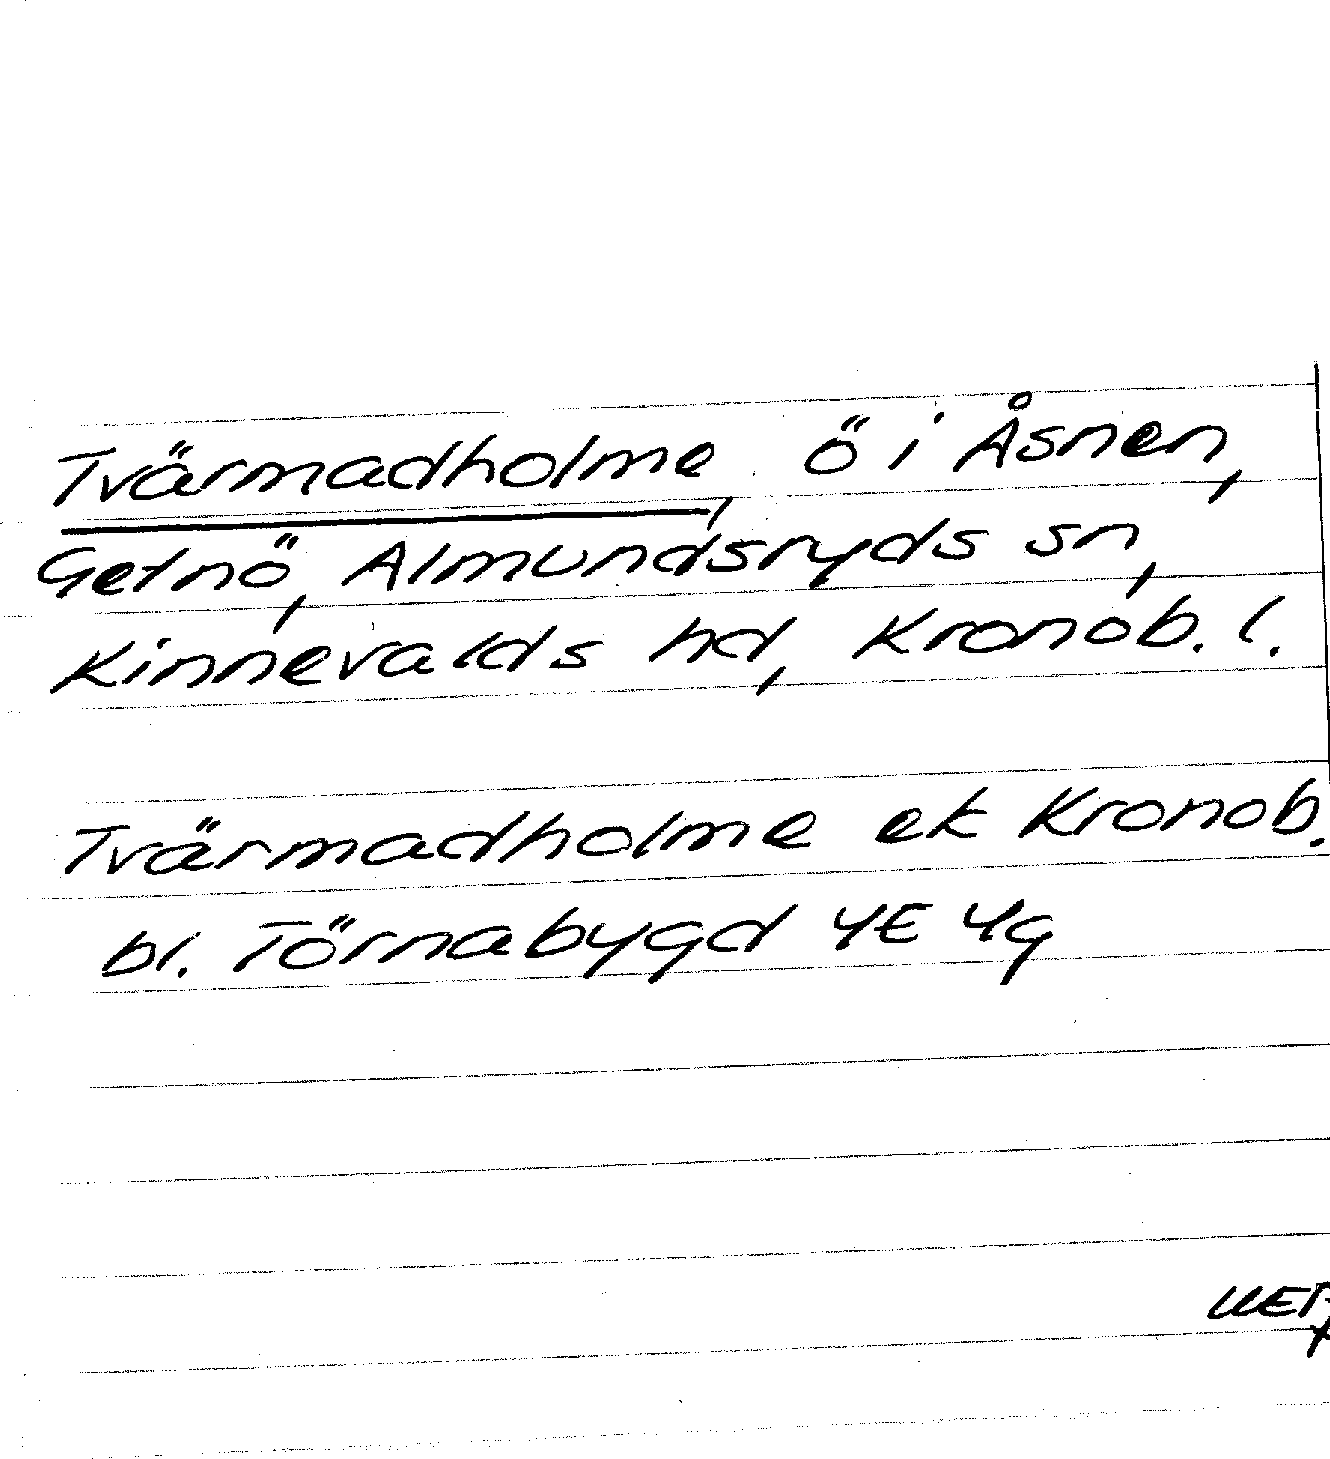 Tvärmadholme, ö i Åsnen,
Getnö, Almundsryds sn,
Kinnevalds hd, Kronob. l.
Tvärmadholme ek Kronob.
bl. Törnabygd 4E 4g